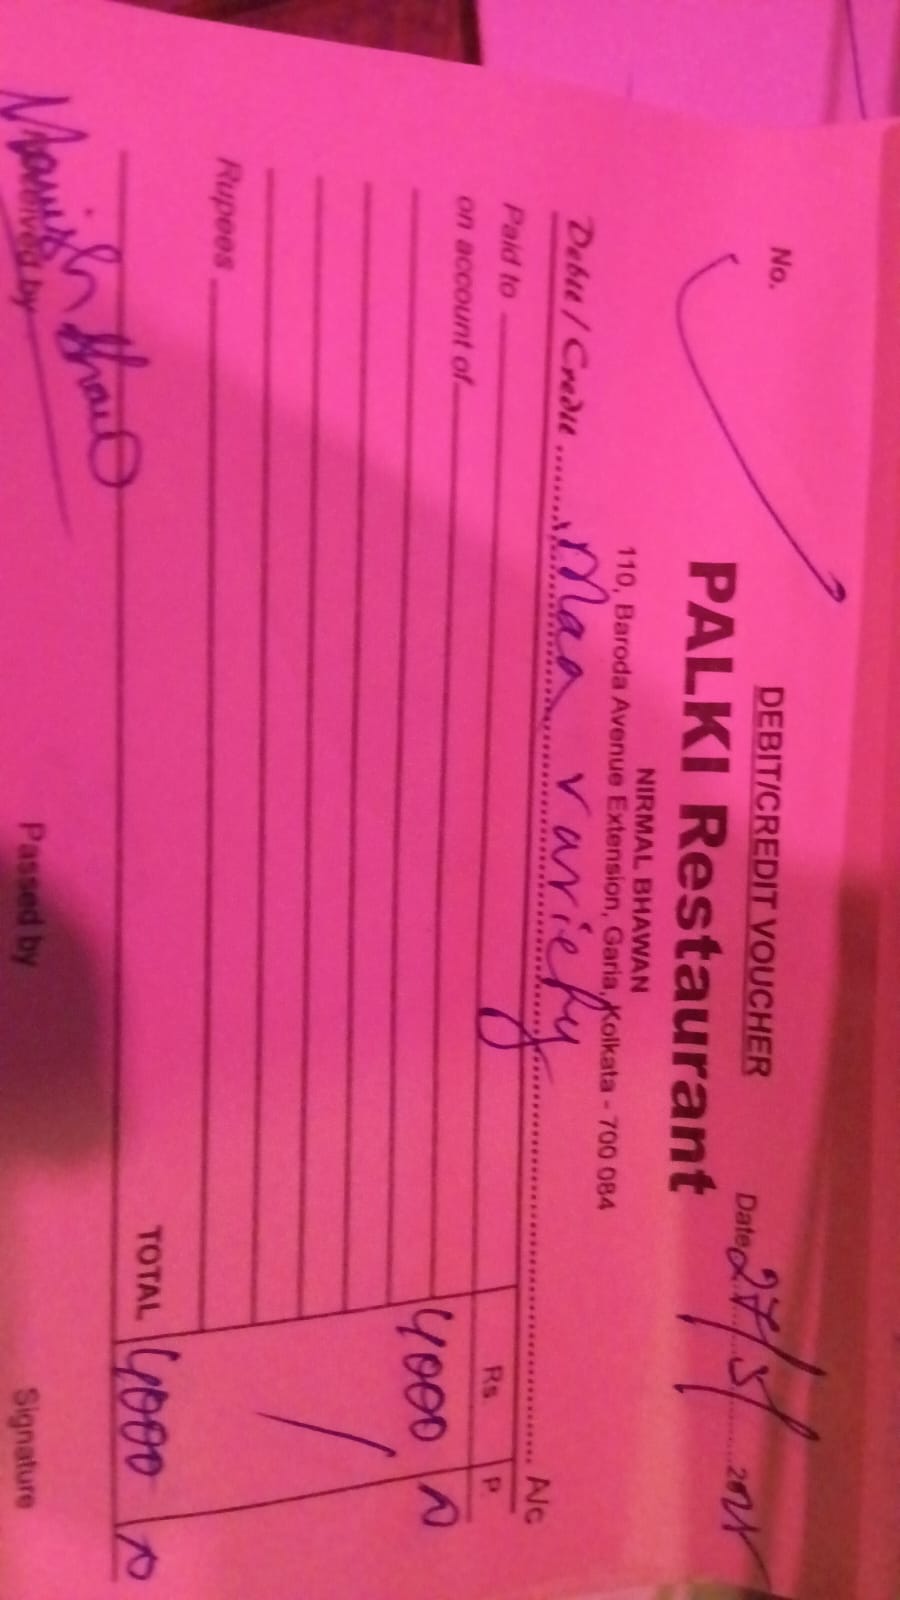 DEBIT/CREDIT VOUCHER
No.
Date 27/5/
PALKI Restaurant
NIRMAL BHAWAN
110, Baroda Avenue Extension, Garia, Kolkata - 700 084
Debit / Credit Maa variety A/c
Paid to Rs. P.
on account of 4000
Rupees
TOTAL 4000
Manish Shaw
Received by Passed by Signature